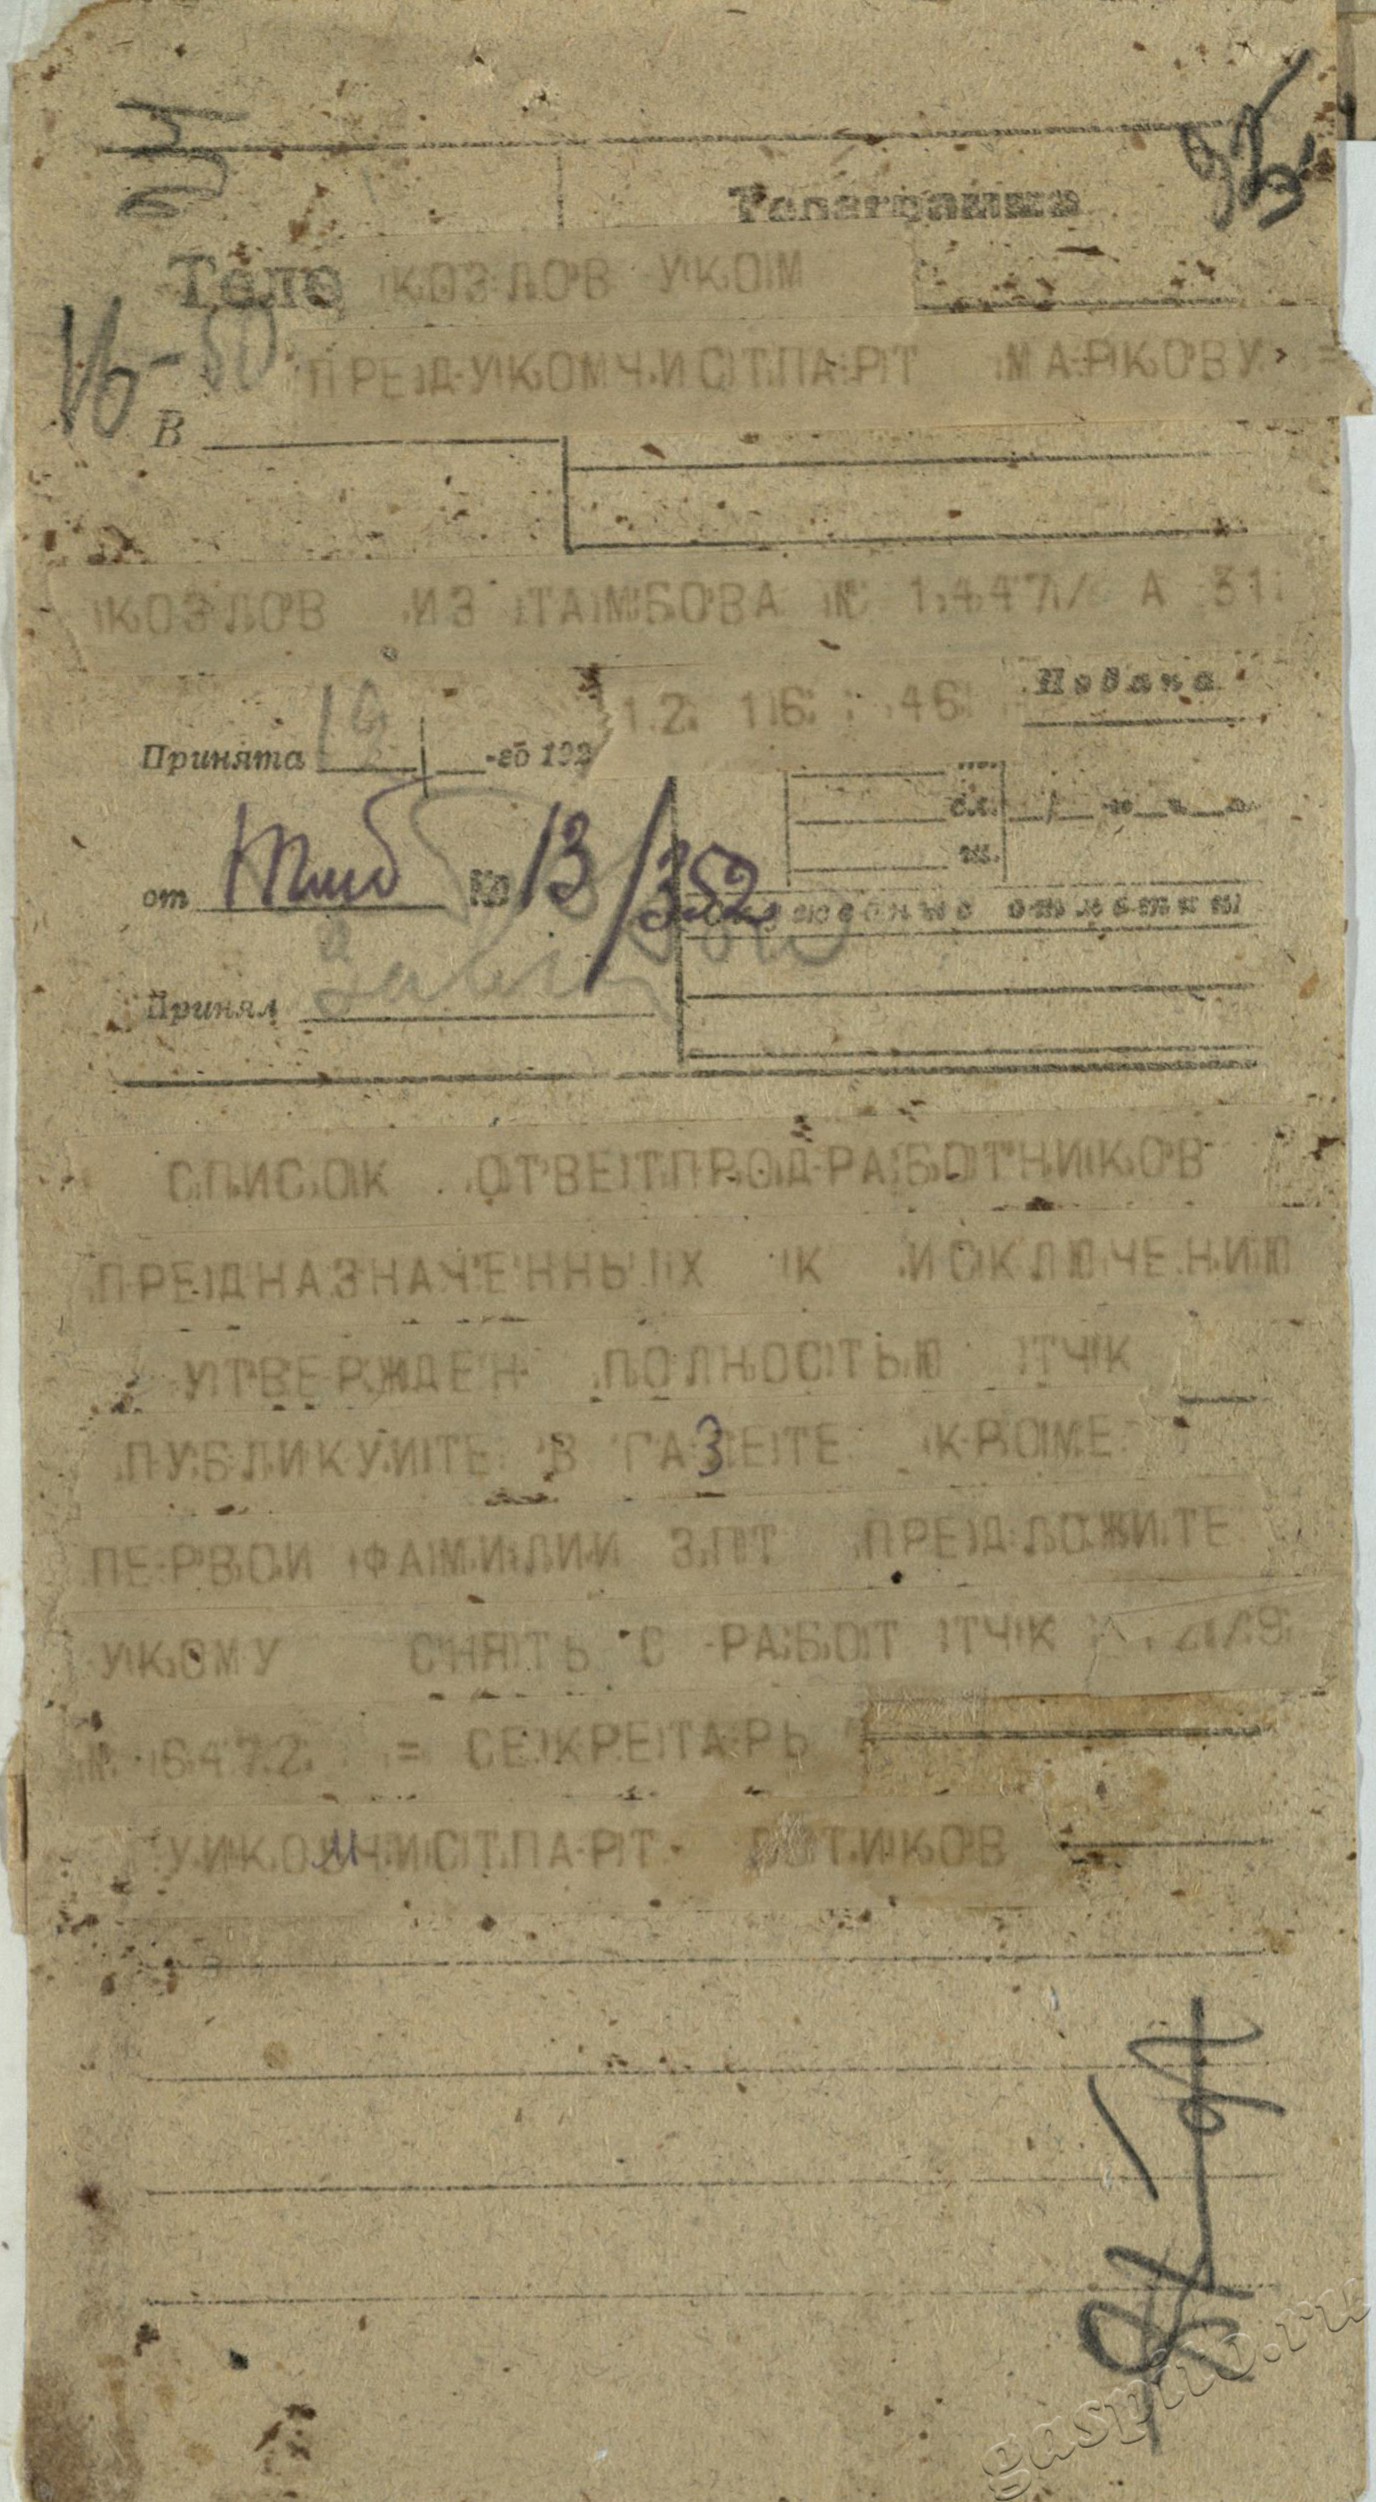 Телеграмма
Теле КОЗЛОВ УКОМ
16-50
ПРЕДУКОМЧИСТПАРТ МАРКОВУ =
В
КОЗЛОВ ИЗ ТАМБОВА № 1447/ А 31
12 16 46 Подана
Принята -го 192
сл.
от Тмб № 13/352 Служебные отметки
Принял
СПИСОК ОТВЕТПРОДРАБОТНИКОВ
ПРЕДНАЗНАЧЕННЫХ К ИСКЛЮЧЕНИЮ
УТВЕРЖДЕН ПОЛНОСТЬЮ ТЧК
ПУБЛИКУИТЕ В ГАЗЕТЕ КРОМЕ
ПЕРВОИ ФАМИЛИИ ЗПТ ПРЕДЛОЖИТЕ
УКОМУ СНЯТЬ С РАБОТ ТЧК
6472 = СЕКРЕТАРЬ
УИКОМЧИСТПАРТ
gaspito.ru